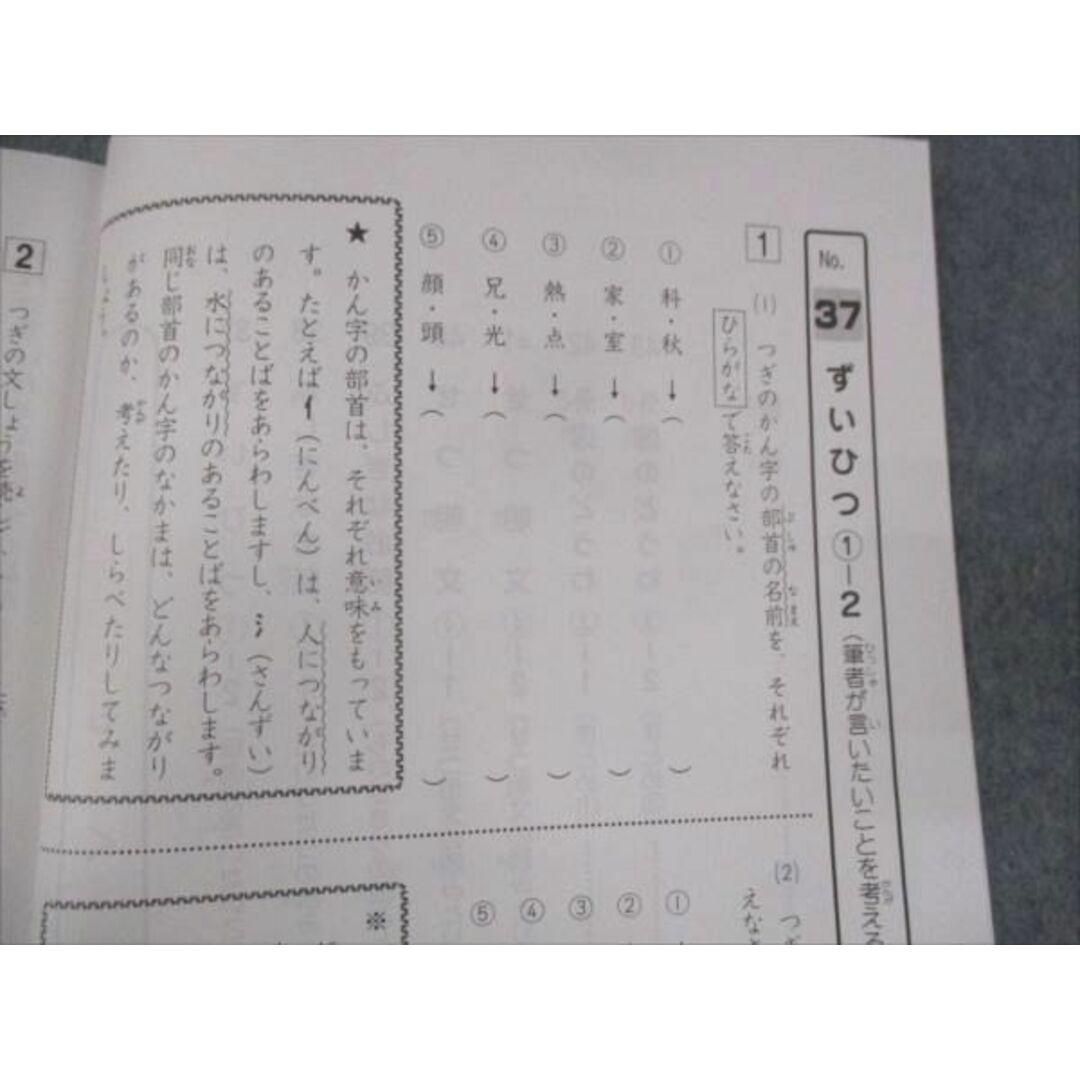 No. 37 ずいひつ①-2（筆者が言いたいことを考える
1
(1) つぎのかん字の部首の名前を、それぞれ
ひらがなで答えなさい。
① 科・秋 → （ ）
② 家・室 → （ ）
③ 熱・点 → （ ）
④ 兄・光 → （ ）
⑤ 顔・頭 → （ ）
★ かん字の部首は、それぞれ意味をもっていま
す。たとえば亻（にんべん）は、人につながり
のあることばをあらわしますし、氵（さんずい）
は、水につながりのあることばをあらわします。
同じ部首のかん字のなかまは、どんなつながり
があるのか、考えたり、しらべたりしてみま
(2) つぎ
えな
①
②
③
④
⑤
※
2
つぎの文しょうを読